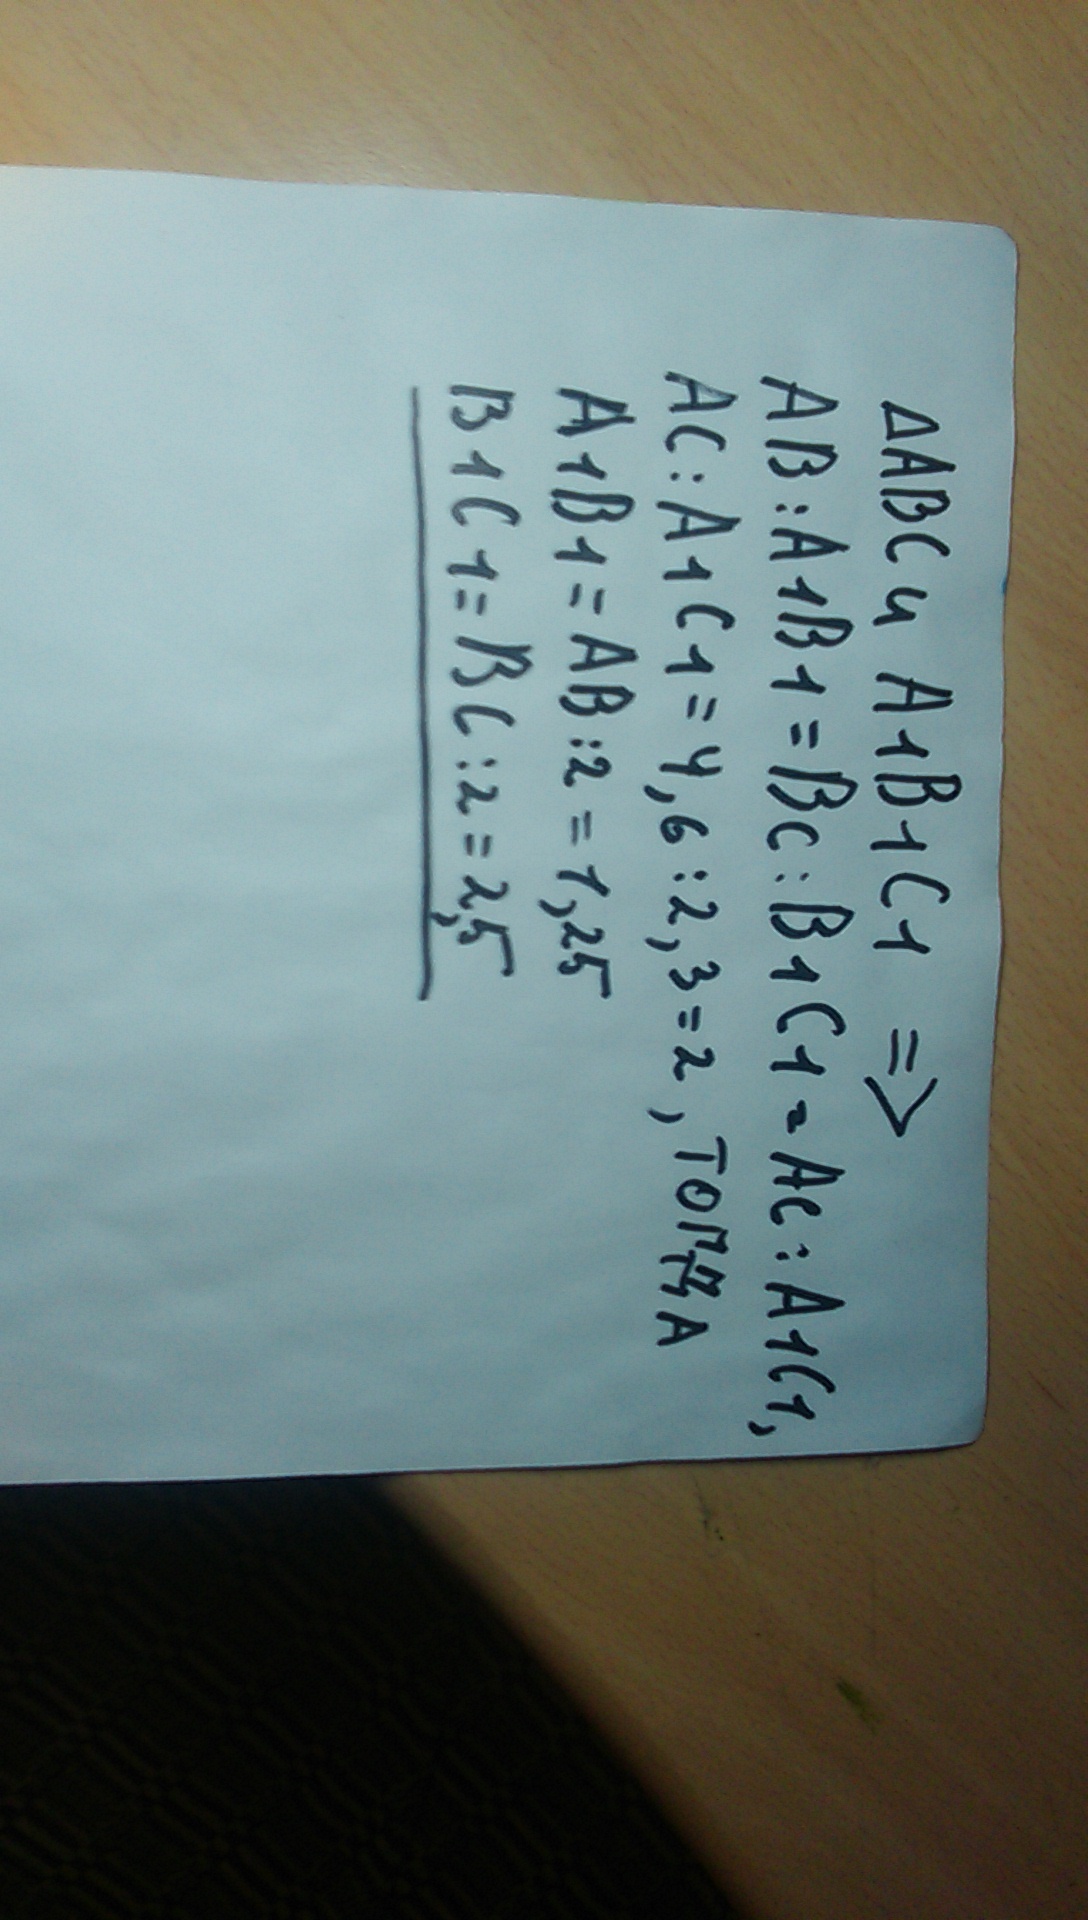 ΔABC и A1B1C1 =>
AB:A1B1=BC:B1C1=AC:A1C1,
AC:A1C1=4,6:2,3=2, ТОГДА
A1B1=AB:2=1,25
B1C1=BC:2=2,5